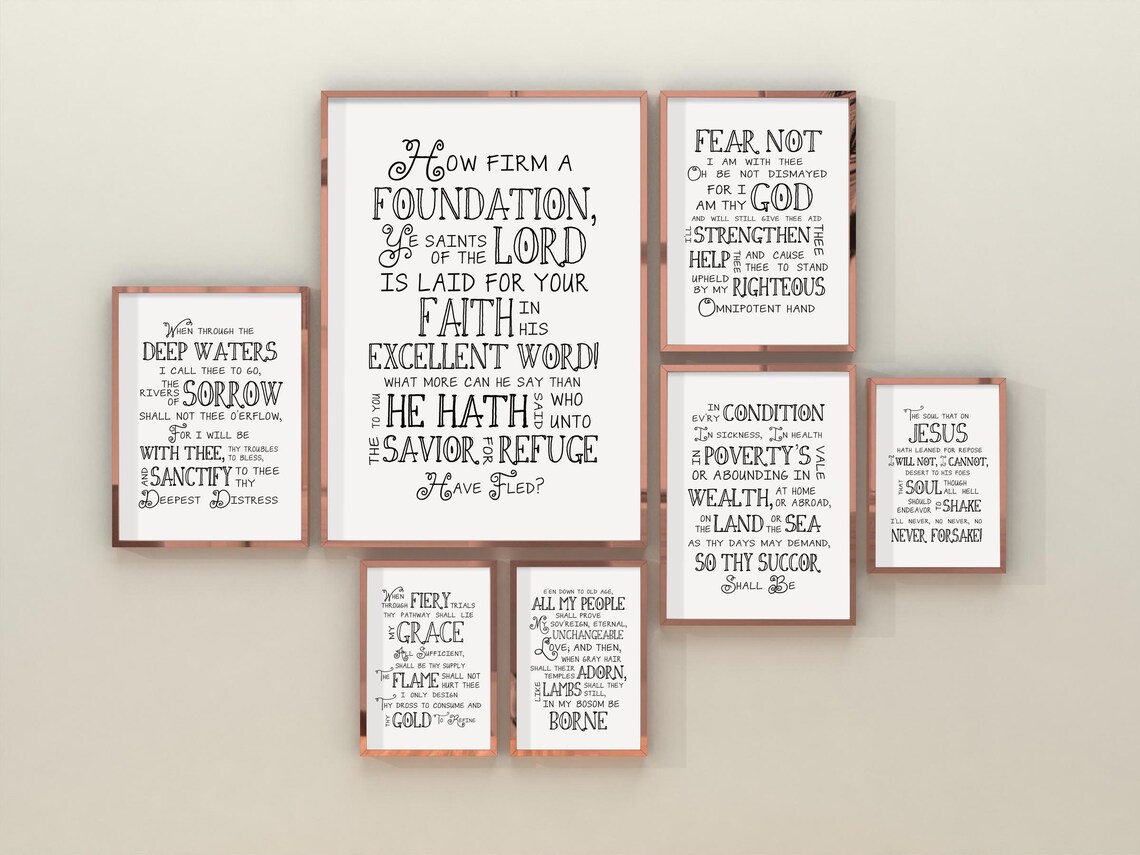 How firm a
FOUNDATION,
Ye saints of the LORD
is laid for your
FAITH in his
EXCELLENT WORD!
what more can he say than
to you HE HATH said who unto
the SAVIOR for REFUGE
Have Fled?
FEAR NOT
I am with thee
Oh be not dismayed
for I am thy GOD
and will still give thee aid
I'll STRENGTHEN thee
HELP thee and cause thee to stand
upheld by my RIGHTEOUS
Omnipotent hand
When through the
DEEP WATERS
I call thee to go,
the rivers of SORROW
shall not thee o'erflow,
For I will be
WITH THEE, thy troubles to bless,
and SANCTIFY to thee thy
Deepest Distress
In ev'ry CONDITION
In sickness, In health
in POVERTY'S vale
or abounding in
WEALTH, at home or abroad,
on the LAND or on the SEA
as thy days may demand,
SO THY SUCCOR
Shall Be
The soul that on
JESUS
hath leaned for repose
I WILL NOT, I CANNOT,
desert to his foes
that SOUL though all hell
should endeavor to SHAKE
I'll never, no never, no
NEVER FORSAKE!
When through FIERY trials
thy pathway shall lie
my GRACE
All Sufficient,
shall be thy supply
The FLAME shall not hurt thee
I only design
Thy dross to consume and
thy GOLD To Refine
E'en down to old age,
ALL MY PEOPLE
shall prove
My sov'reign, eternal,
UNCHANGEABLE
Love; and then,
when gray hair
shall their temples ADORN,
like LAMBS shall they still,
in my bosom be
BORNE